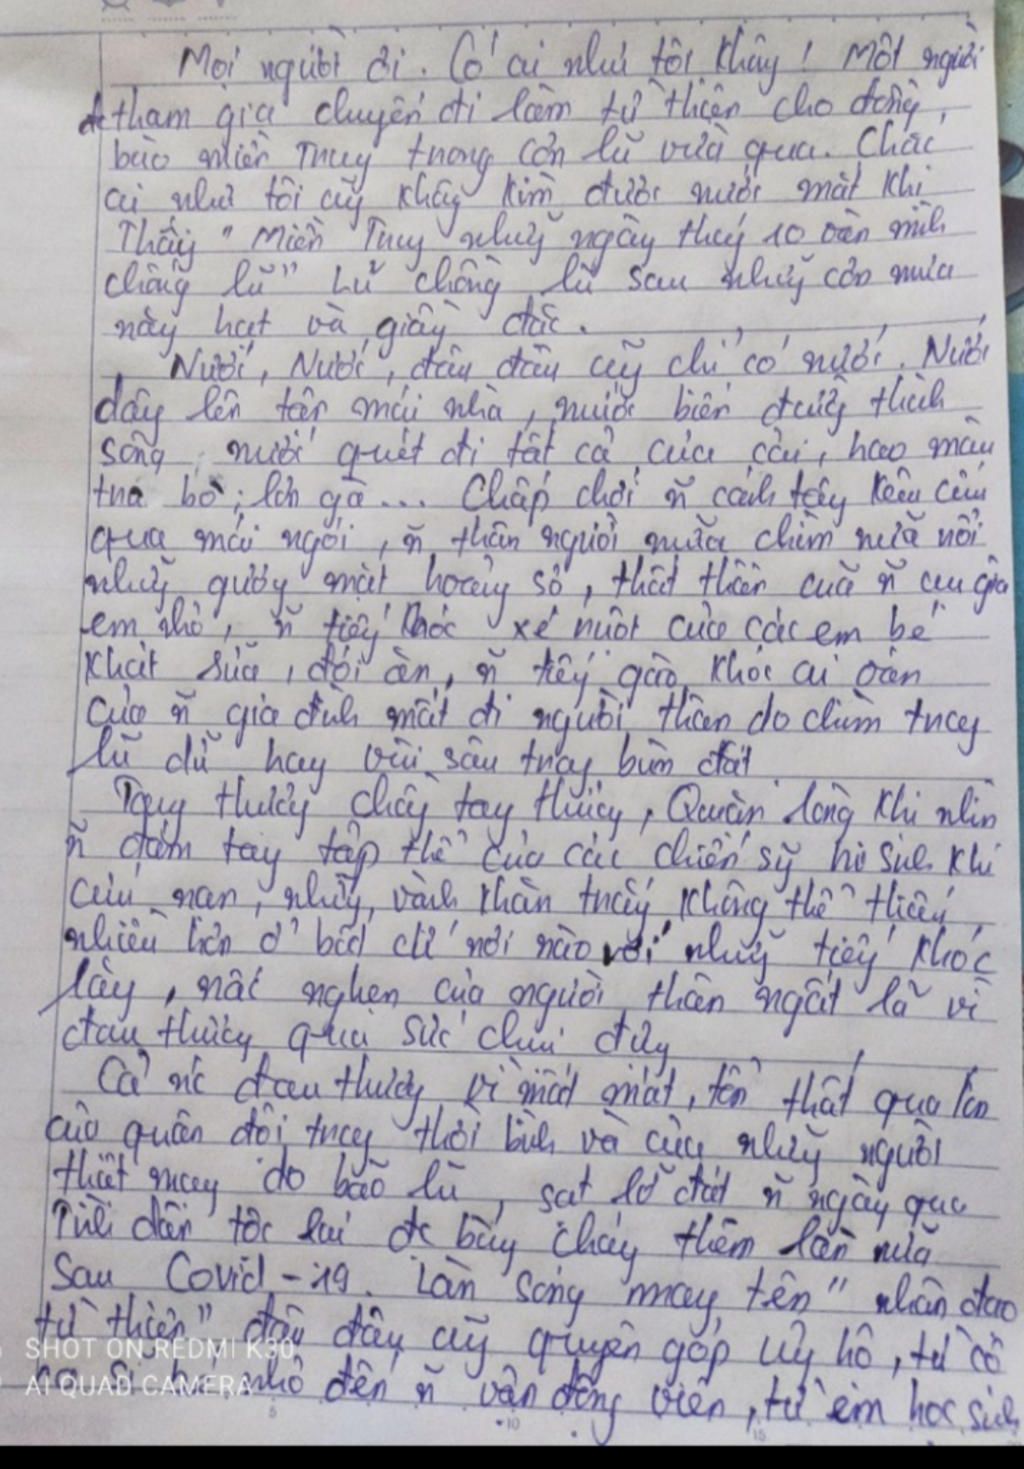 Mọi người ơi. Có ai như tôi khôg! Một người
tham gia chuyến đi làm từ thiện cho đồng
bào miền Trug trong cơn lũ vừa qua. Chắc
ai như tôi cũg khôg kìm được nước mắt khi
Thấy "Miền Trug nhữg ngày thág 10 oằn mìh
chốg lũ" Lũ chồng lũ sau nhữg cơn mưa
nặg hạt và giôg dài.
Nước, Nước, đâu đâu cũg chỉ có nước. Nước
dâg lên tận mái nhà, nước biến đườg thàh
sông, nước quét đi tất cả của cải, hao màu
trâ bò, lơn gà... Chấp chới ~ cáh tay kêu cứu
qua mái ngói, ~ thân người nửa chìm nửa nổi
nhữg gươg mặt hoảg sợ, thất thần của ~ cụ già
em nhỏ, ~ tiếg khóc xé ruột của các em bé
khát sữa, đói ăn, ~ tiếg gào khóc ai oán
của ~ gia đìh mất đi người thân do chìm trog
lũ dữ hay vùi sâu trog bùn đất
thươg chồg tag thươg, Quặn lòng khi nhìn
~ đám tag tập thể của các chiến sỹ hi sih khi
cứu nạn, nhữg vàh khăn trắg khôg thể thiếu
nhiều hơn ở bất cứ nơi nào với nhữg tiếg khóc
lặg, nấc nghẹn của người thân ngất lả vì
đau thươg quá sức chịu đựg
Cả nc đau thươg vì mất mát, tổn thất quá lớn
của quân đội trog thời bìh và của nhữg người
thiệt mạg do bão lũ, sạt lở đất ~ ngày qua
Tìh dân tộc lại đc bùg cháy thêm lần nữa
Sau Covid-19. Làn sóng mag tên "nhân đạo
từ thiện" đâu đâu cũg quyên góp ủg hộ, từ cô
nhỏ đến ~ vận độg viên, từ em học sih
SHOT ON REDMI K30
AI QUAD CAMERA